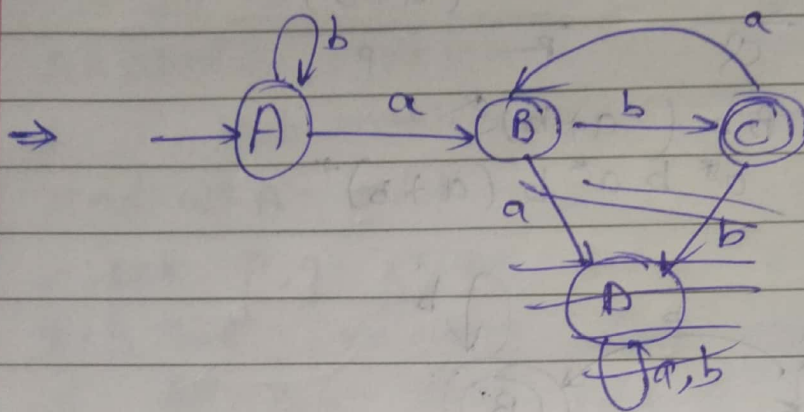 b
a
A
a
B
b
C
a
b
D
a,b